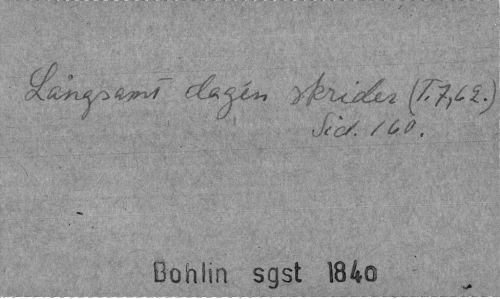 Långsamt dagen skrider (T.7,62.)
Sid. 160.
Bohlin sgst 1840